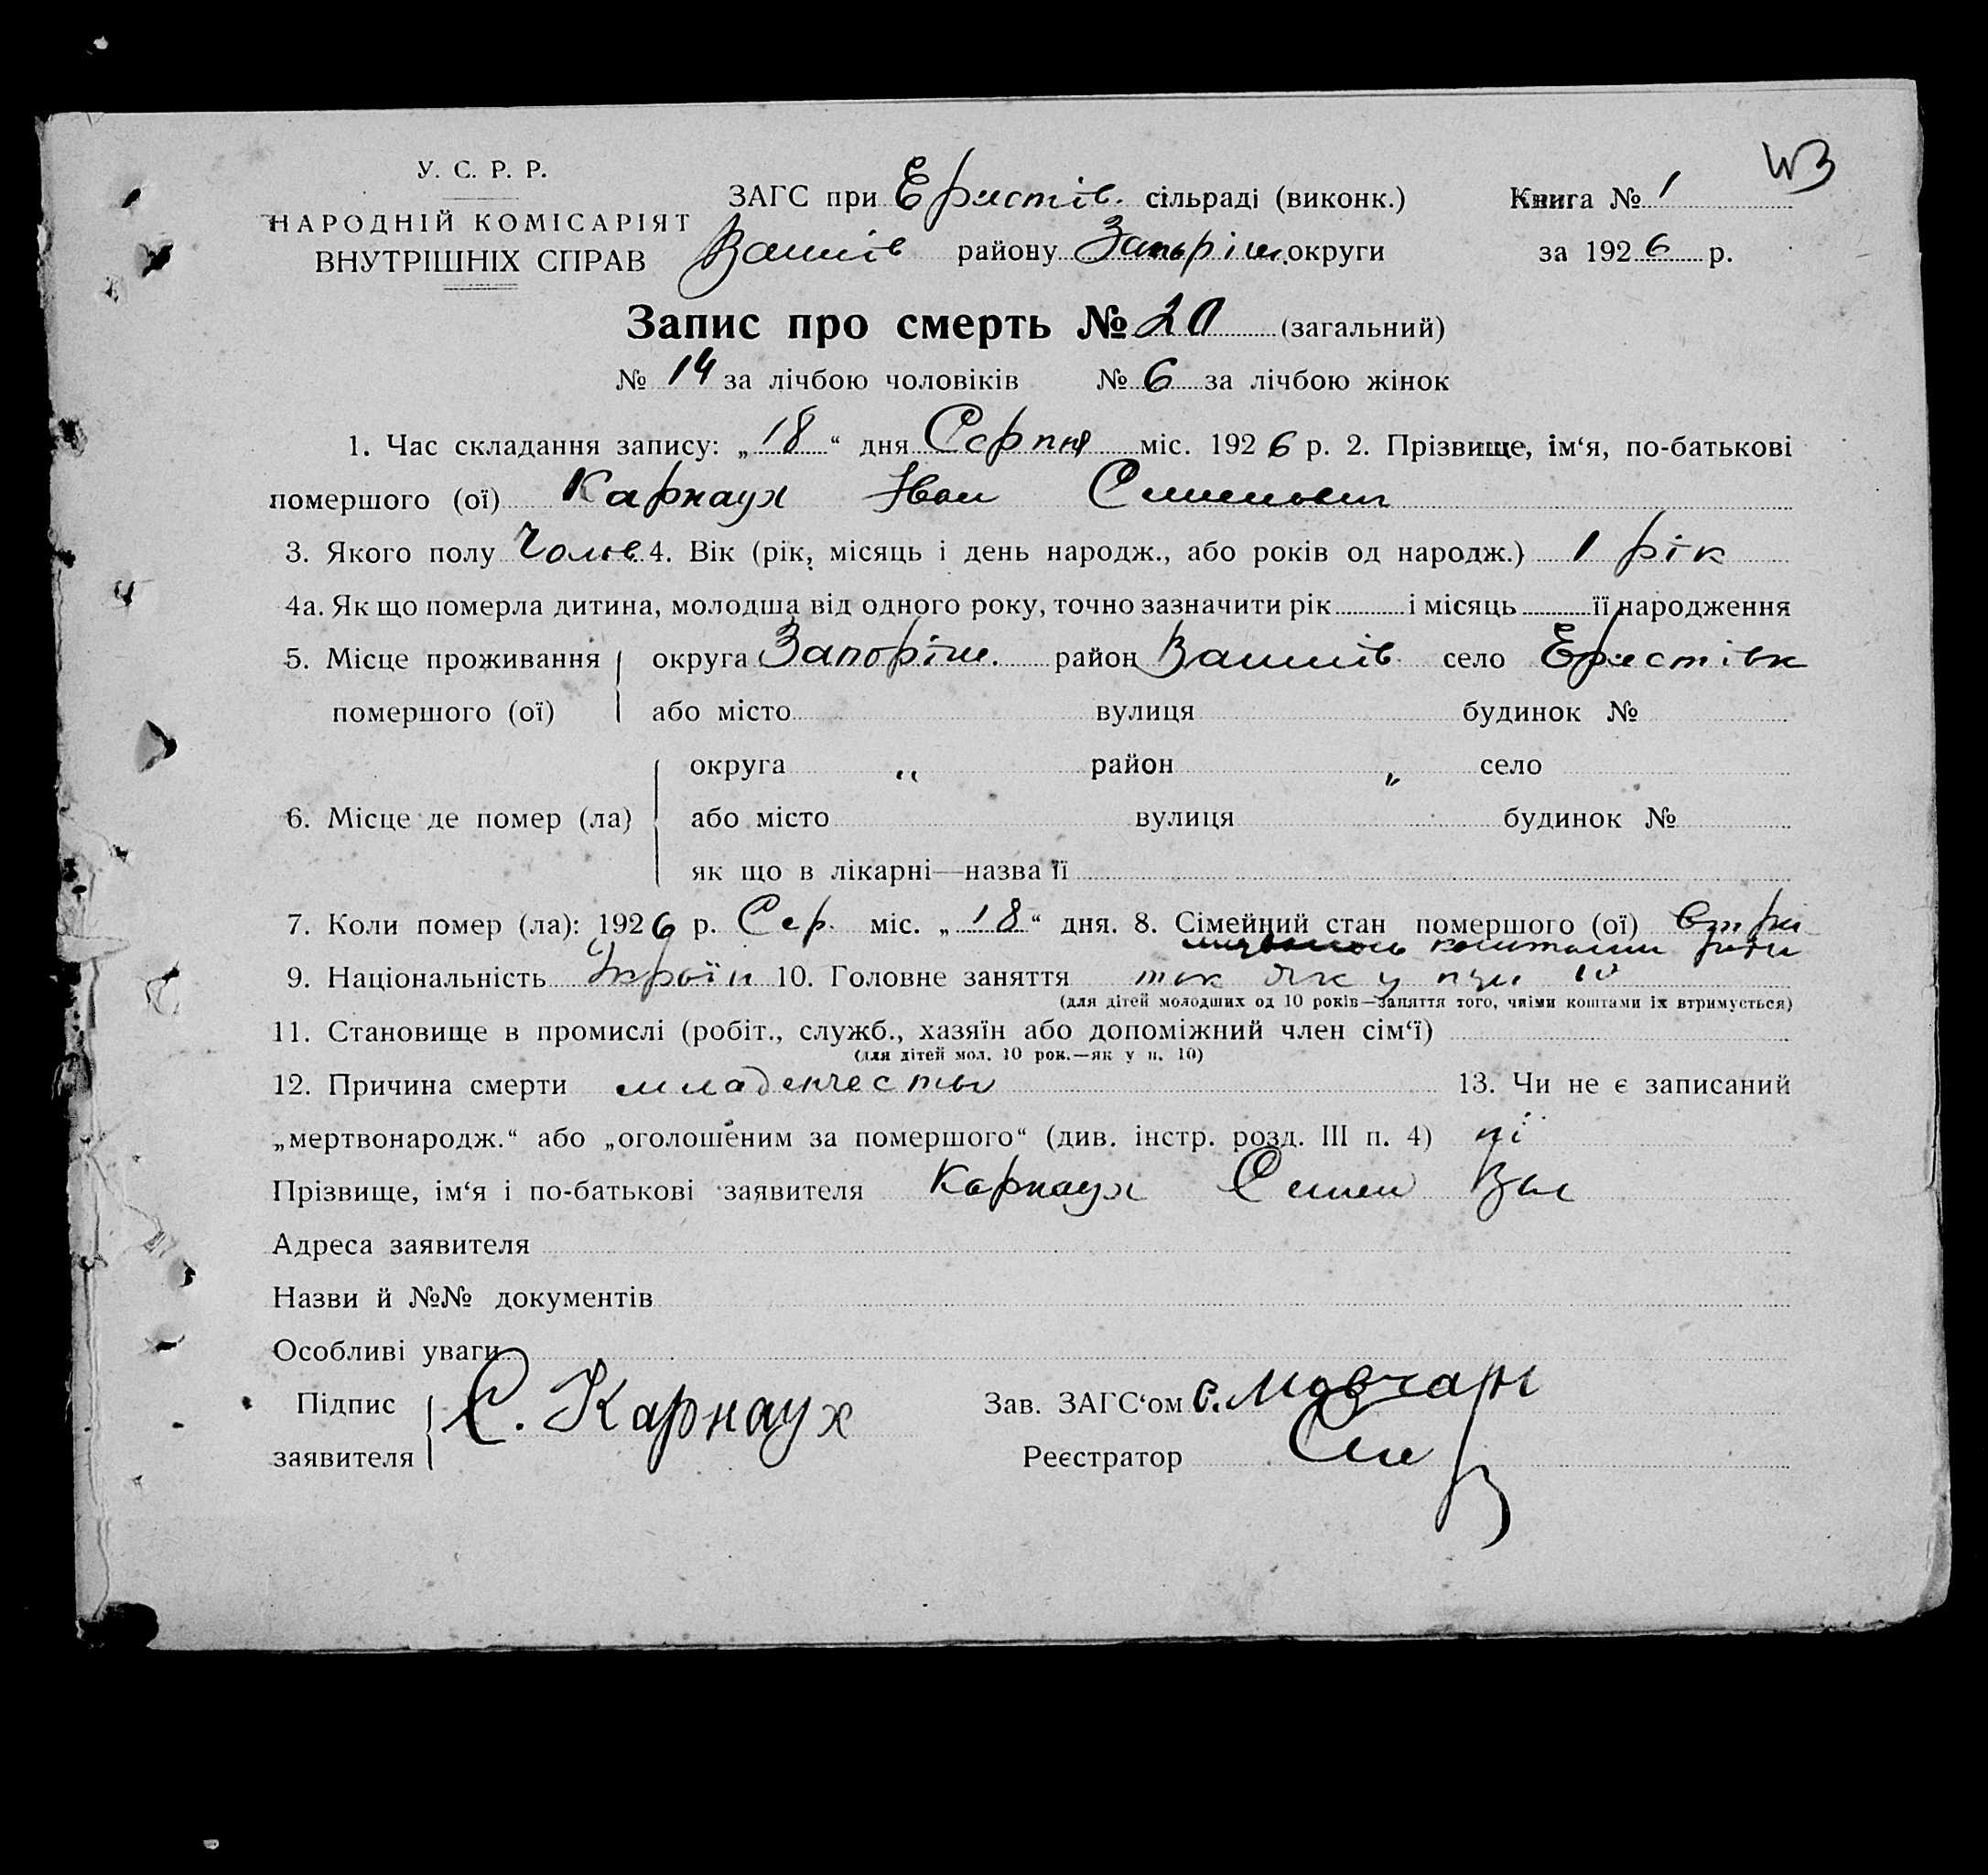 У. С. Р. Р.
НАРОДНІЙ КОМІСАРІЯТ
ВНУТРІШНІХ СПРАВ
ЗАГС при Еристів. сільраді (виконк.)
району Запоріж. округи
Книга № 1
за 1926 р.
Запис про смерть № 20 (загальний)
№ 14 за лічбою чоловіків № 6 за лічбою жінок
1. Час складання запису: „18“ дня Серпня міс. 1926 р. 2. Прізвище, ім‘я, по-батькові
помершого (ої) Карнаух Іван Семенович
3. Якого полу Чолов. 4. Вік (рік, місяць і день народж., або років од народж.) 1 рік
4а. Як що померла дитина, молодша від одного року, точно зазначити рік і місяць її народження
5. Місце проживання округа Запоріж. район село Еристівк
помершого (ої) або місто вулиця будинок №
округа „ район „ село
6. Місце де помер (ла) або місто вулиця будинок №
як що в лікарні—назва її
7. Коли помер (ла): 1926 р. Сер. міс. „18“ дня. 8. Сімейний стан помершого (ої)
коштами
9. Національність Україн 10. Головне заняття так як у 10
(для дітей молодших од 10 років—заняття того, чиїми коштами їх втримується)
11. Становище в промислі (робіт., служб., хазяїн або допоміжний член сім‘ї)
(для дітей мол. 10 рок.—як у п. 10)
12. Причина смерти младенчества 13. Чи не є записаний
„мертвонародж.“ або „оголошеним за помершого“ (див. інстр. розд. III п. 4) ні
Прізвище, ім‘я і по-батькові заявителя Карнаух Семен
Адреса заявителя
Назви й №№ документів
Особливі уваги
Підпис
заявителя С. Карнаух
Зав. ЗАГС‘ом С. Мовчан
Реєстратор